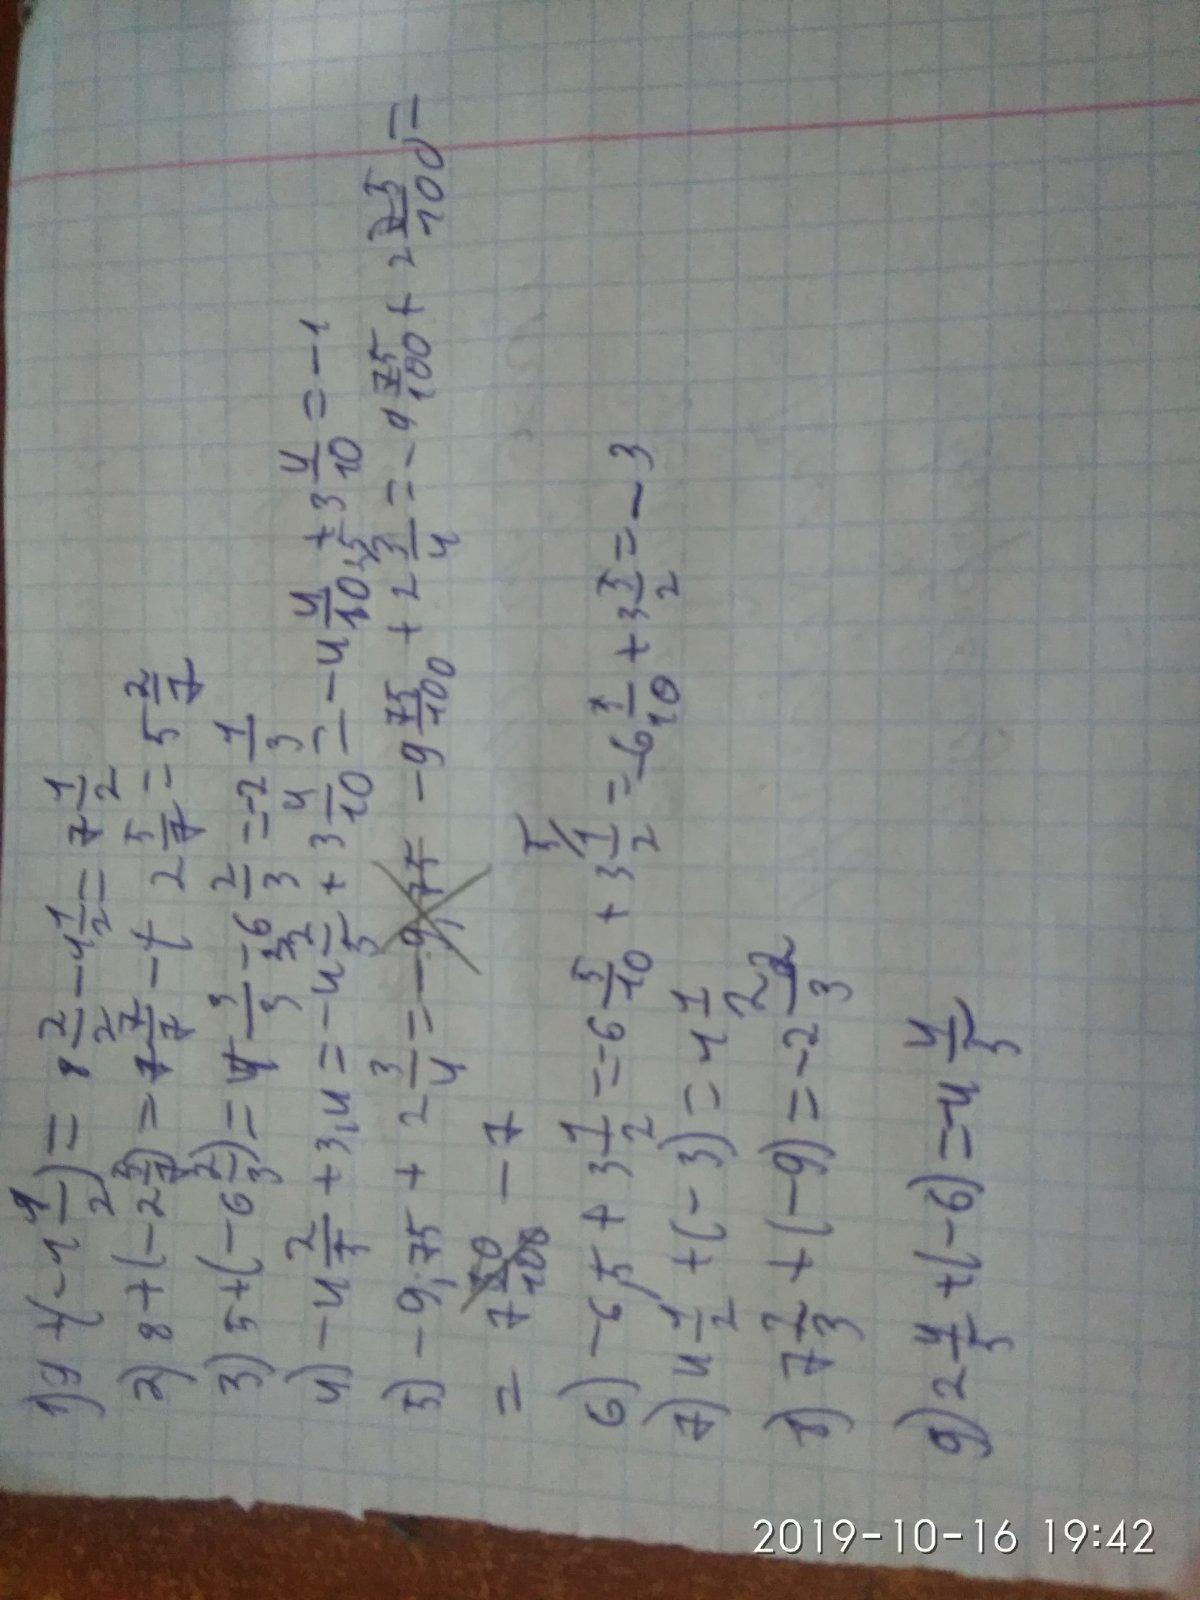 1) 9 + (-1 1/2) = 8 2/2 - 1 1/2 = 7 1/2
2) 8 + (-2 5/7) = 7 7/7 - 2 5/7 = 5 2/7
3) 5 + (-6 2/3) = 4 3/3 - 6 2/3 = -2 1/3
4) -4 2/5 + 3,4 = -4 2/5 + 3 4/10 = -4 4/10 + 3 4/10 = -1
5) -9,75 + 2 3/4 = -9 75/100 + 2 3/4 = -9 75/100 + 2 75/100 =
= -7
6) -6,5 + 3 1/2 = -6 5/10 + 3 1/2 = -6 5/10 + 3 5/2 = -3
7) 4 1/2 + (-3) = 1 1/2
8) 7 2/3 + (-9) = -2 2/3
9) 2 4/5 + (-6) = -4 4/5
2019-10-16 19:42